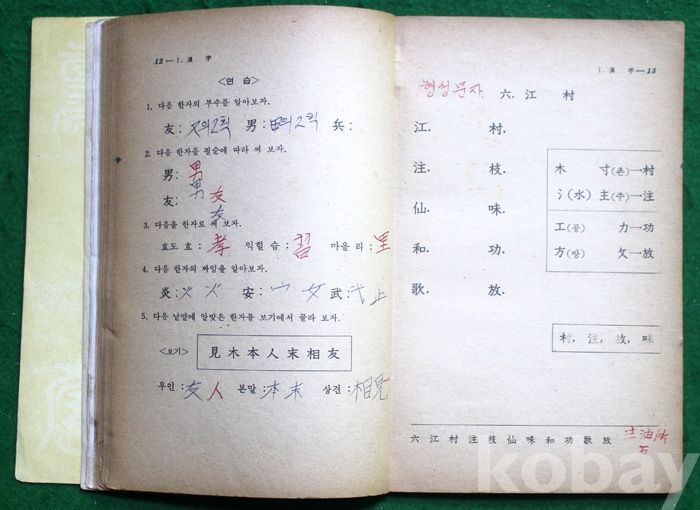 12—Ⅰ. 漢 字
<연 습>
1. 다음 한자의 부수를 알아보자.
友: 又의2획 男: 田의2획 兵:
2. 다음 한자를 필순에 따라 써 보자.
男: 男
男
友: 友
友
3. 다음을 한자로 써 보자.
효도 효: 孝 익힐 습: 習 마을 리: 里
4. 다음 한자의 짜임을 알아보자.
炎: 火 火 安: 宀 女 武: 弋 止
5. 다음 낱말에 알맞은 한자를 보기에서 골라 보자.
<보기> 見 木 本 人 末 相 友
우인: 友人 본말: 本末 상견: 相見
Ⅰ. 漢 字—13
형성문자. 六. 江 村
江. 村.
注. 枝.
仙. 味.
和. 功.
歌. 放.
木 寸(촌)—村
氵(水) 主(주)—注
工(공) 力—功
方(방) 攵—放
村, 注, 放, 味
六 江 村 注 枝 仙 味 和 功 歌 放
注油所
kobay